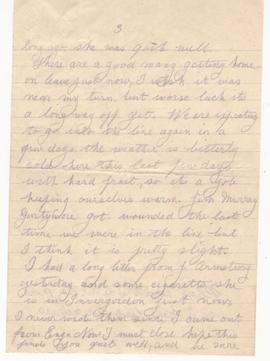 3
long ago she was quite well.
There are a good many getting home
on leave just now, I wish it was
near my turn, but worse luck its
a long way off yet. We are expecting
to go into the line again in a
few days the weather is bitterly
cold here this last few days
with hard frost, so its a job
keeping ourselves warm. John Murray
got wounded the last
time we were in the line but
I think it is pretty slight.
I had a long letter from J Armstrong
yesterday and some cigarettes she
is in Invergordon just now.
I never wrote them since I came out
from Now I must close hope this
finds you quite well, and be sure